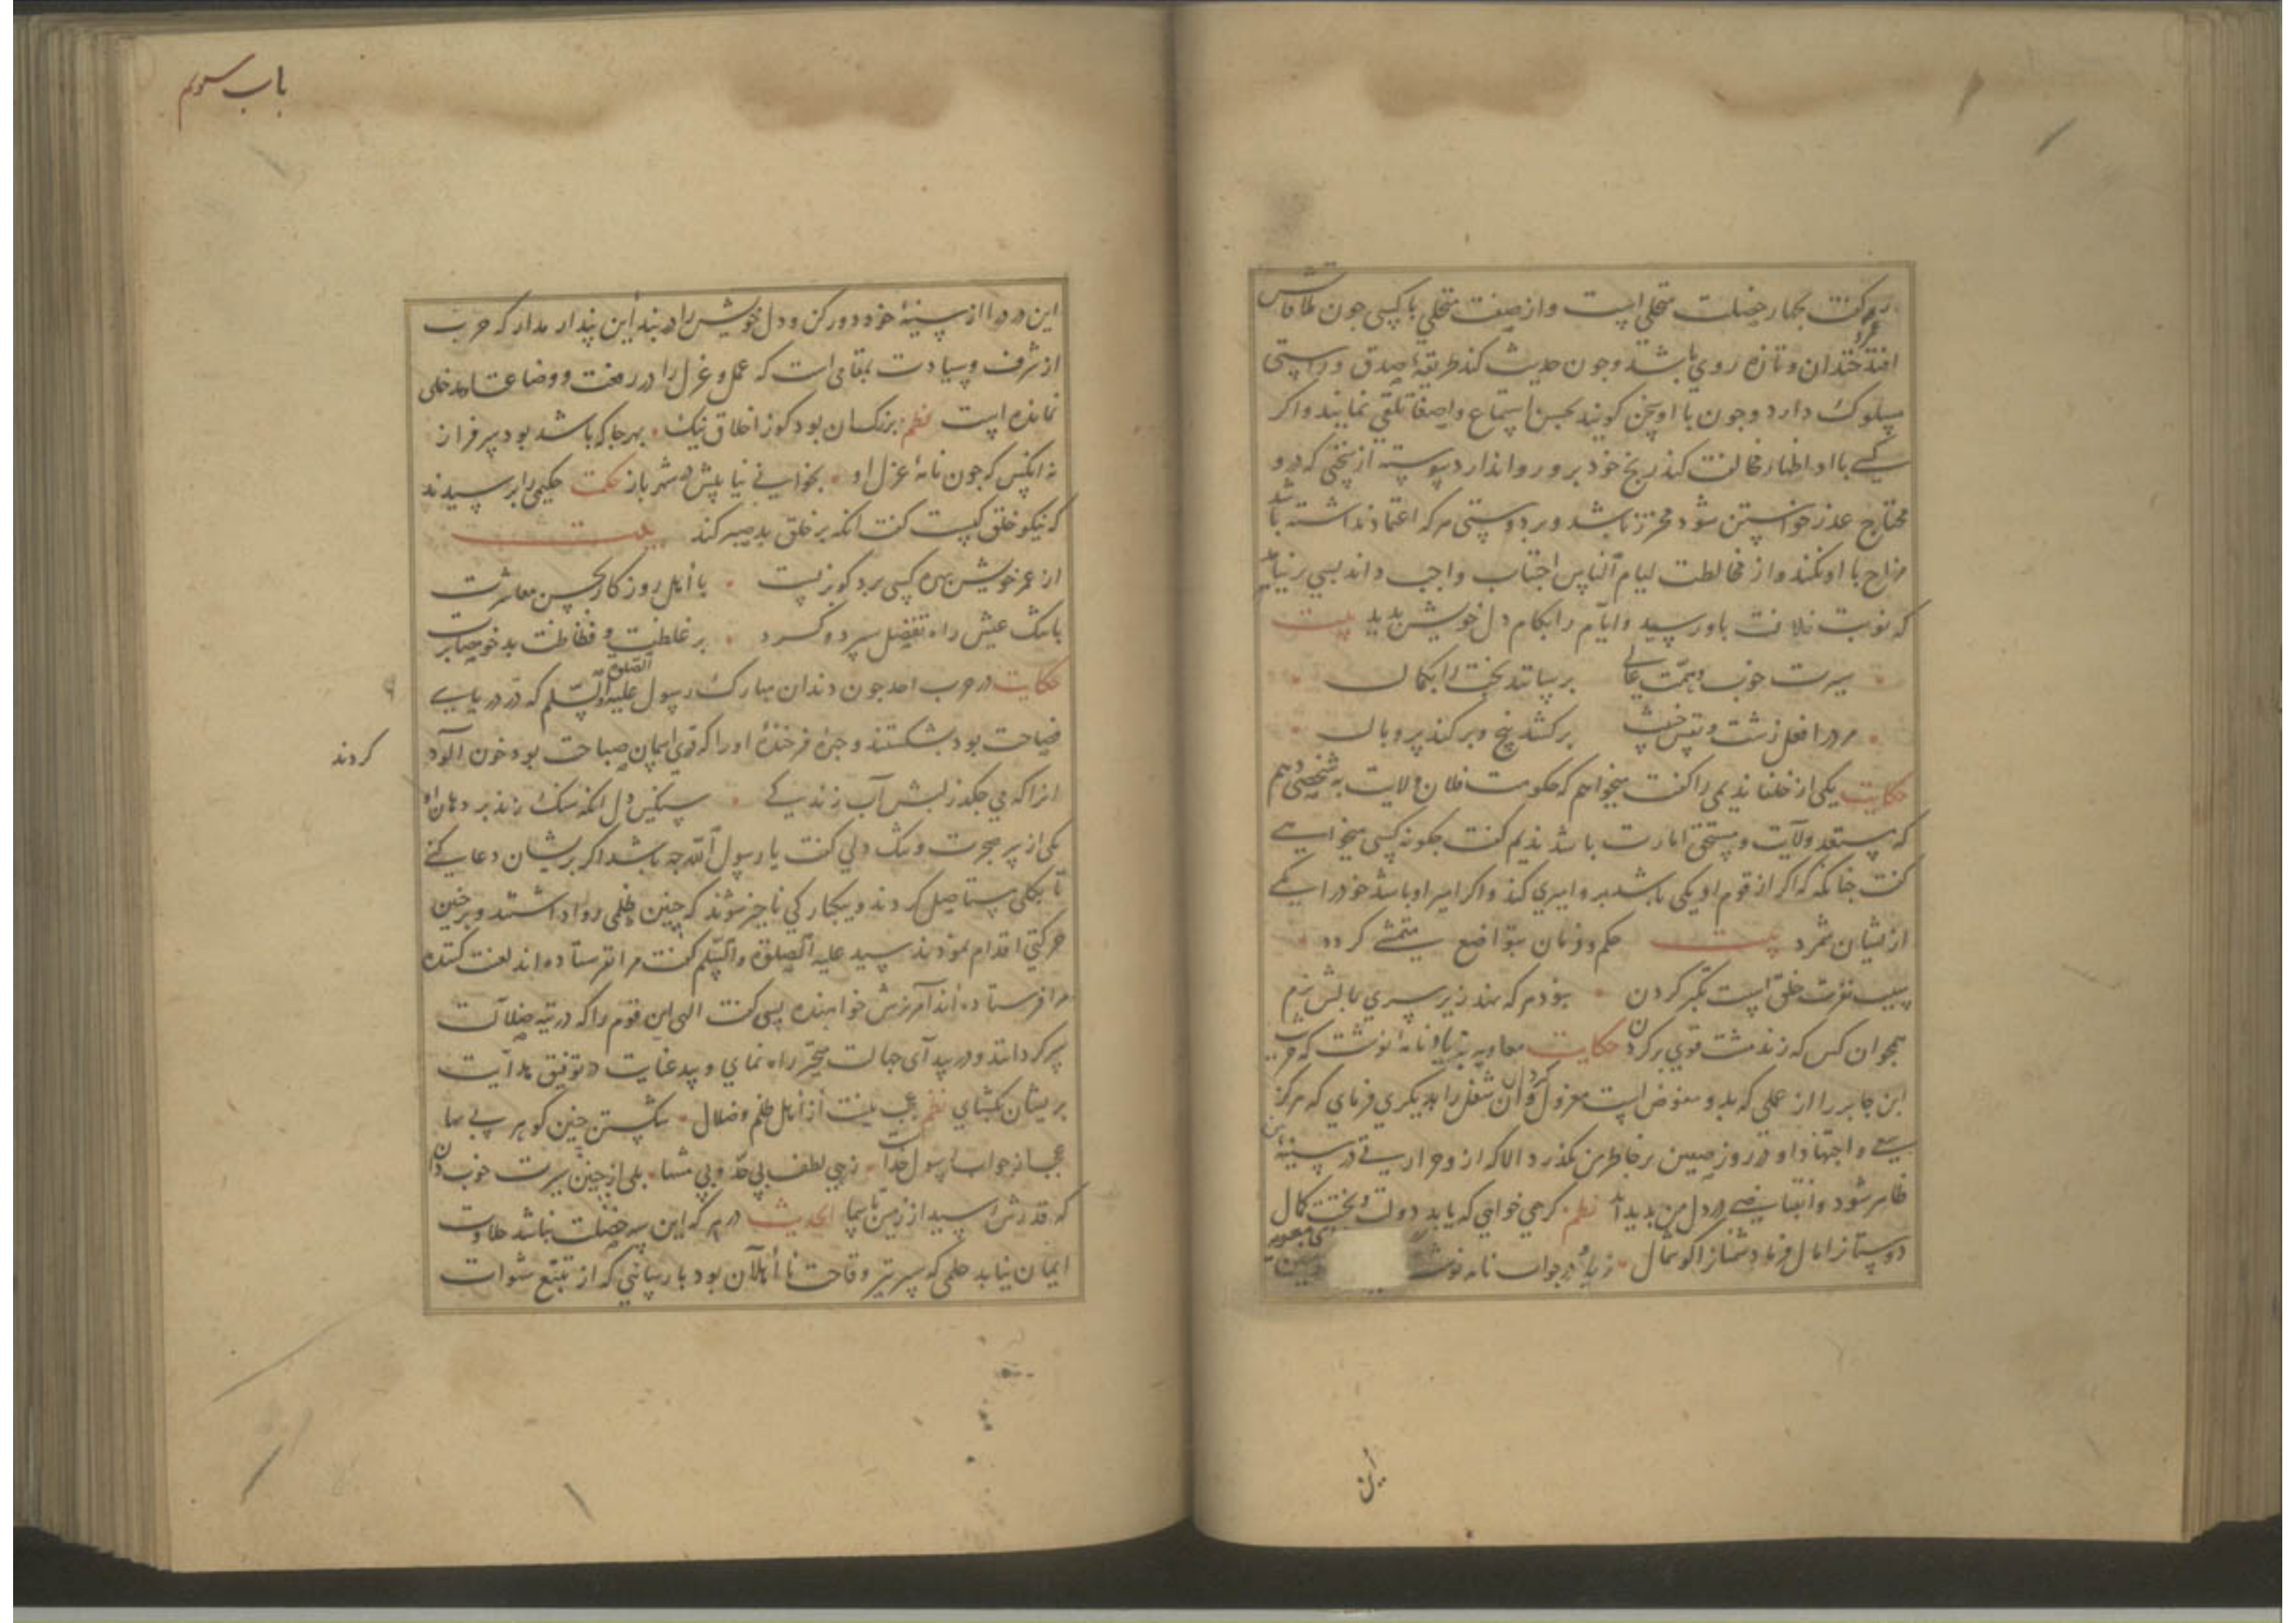 کفت بچهار خصلت متحلی است و از صفت متخلی با کسی چون ملاقاتش
افتد خندان و تازه روی باشد و چون حدیث کند طریقهٔ صدق و راستی
مسلوک دارد و چون با او سخن کویند بحسن استماع و اصغا تلقی نماید و اکر
کسی با او اظهار مخالفت کند رنج خود برو روا ندارد پیوسته از سخنی که درو
محتاج عذر خواستن شود محترز باشد و بر دوستی هر که اعتماد نداشته باشد
مزاح با او نکند و از مخالطت لیام الناس اجتناب واجب داند بسی بر نیامد
که نوبت خلافت باو رسید و ایام را بکام دل خویش بدید بیت
سیرت خوب و همت عالی برساند بخت را بکمال
مرد را فعل زشت و خبیث برکشد بیخ و برکند پر و بال
حکایت یکی از خلفا ندیمی را کفت میخواهم که حکومت فلان ولایت به شخصی دهم
که مستعد ولایت و مستحق امارت باشد ندیم کفت چکونه کسی میخواهی
کفت چنانکه اکر از قوم او یکی باشد برو امیری کند و اکر امیر او باشد خود را یکی
ازیشان شمرد بیت حکم دونان بتواضع متمشی کردد
سبب نفرت خلق است تکبر کردن بودم که نهد زیر سری بالش نرم
همچو ان کس که زند مشت قوی بر کردن حکایت معاویه بزیاد نامهٔ نوشت که حرب
ابن جابر را از عملی که بدو مفوض است معزول کردان و ان شغل را بدیکری فرمای که هرکز
سعی و اجتهاد او در روز صفین بر خاطر من نکذرد الا که ازو حرارتی در سینهٔ من
ظاهر شود و انقباضی در دل من بدید آید نظم کر همی خواهی که یابد دولت و بخت کمال
دوستانرا مال فرما دشمنانرا کوشمال زیاد در جواب نامه نوشت
این
باب سوم
این درد را از سینهٔ خود دور کن و دل خویش را در بند این پندار مدار که حرب
از شرف و سیادت بمقامی است که عمل و عزل را در رفعت و وضاعت او مدخلی
نمانده است نظم بزرک ان بود کوز اخلاق نیک بهرجا که باشد بود سرفراز
نه انکس که چون نامهٔ عزل او بخوانی نیابیش در شهر باز حکمت حکیمی را پرسیدند
که نیکو خلق کیست کفت انکه بر خلق بد صبر کند بیت
از عمر خویش بهره کسی برد کو بزیست با اهل روزکار بحسن معاشرت
با تنک عیش راه تفضل سپرد و کرد بر غلظت و فظاظت بدخو مصابرت
حکایت در حرب احد چون دندان مبارک رسول علیه الصلوة و السلم که در دریای
فصاحت بود بشکستند و چهرهٔ فرخندهٔ او را که قوی ایمان صباحت بود خون الود
کردند
انرا که می چکد ز لبش آب زندکی سنکین دل انکه سنک زند بر دهان او
یکی از سر ضجرت و تنک دلی کفت یا رسول الله چه باشد اکر بریشان دعایی کنی
تا بکلی مستاصل کردند و بیکبارکی ناچیز شوند که چنین ظلمی روا داشتند و بر چنین
حرکتی اقدام نمودند سید علیه الصلوة و السلم کفت مرا نفرستاده اند لعنت کننده
مرا فرستاده اند آمرزش خواهنده پس کفت الهی این قوم را که در تیه ضلالت
سرکردانند و در بیدای جهالت متحیر راه نمای و بید عنایت در توفیق هدایت
بریشان بکشای نظم عجب نیست از اهل ظلم و ضلال شکستن چنین کوهر بی بها
عجب از جواب رسول خداست زهی لطف بی حد و بی منتها بلی از چنین سیرت خوب دان
که قدرش رسید از زمین تا سما الحدیث در هر که این سه خصلت نباشد حلاوت
ایمان نیابد حلمی که سپر تیر وقاحت نااهلان بود پارسایی که از تتبع شهوات